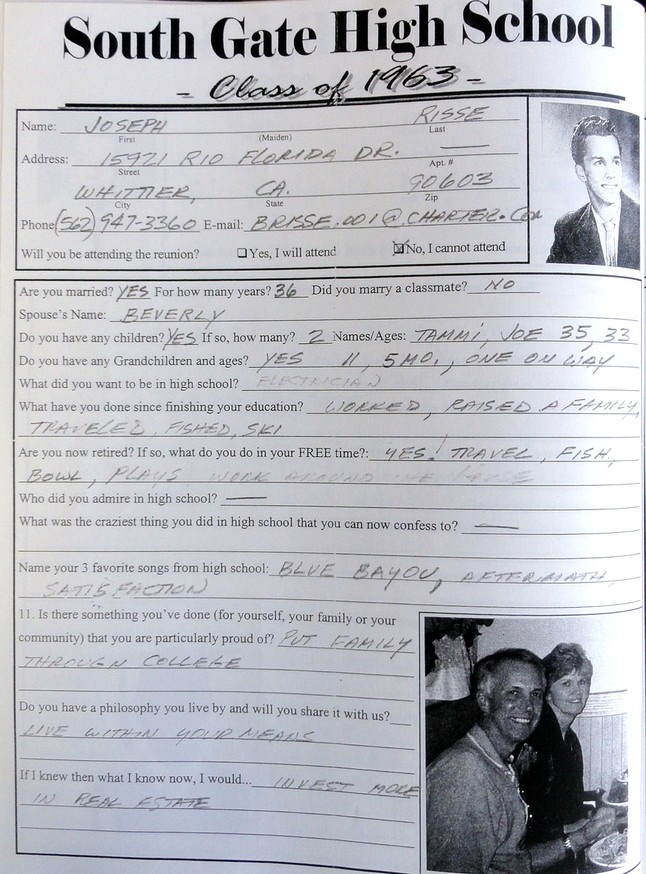 South Gate High School
- Class of 1963 -
Name: JOSEPH RISSE
First (Maiden) Last
Address: 15921 RIO FLORIDA DR. —
Street Apt. #
WHITTIER, CA. 90603
City State Zip
Phone (562) 947-3360 E-mail: BRISSE.001@CHARTER.COM
Will you be attending the reunion? ☐Yes, I will attend ☒No, I cannot attend
Are you married? YES For how many years? 36 Did you marry a classmate? NO
Spouse's Name: BEVERLY
Do you have any children? YES If so, how many? 2 Names/Ages: TAMMI, JOE 35, 33
Do you have any Grandchildren and ages? YES 11, 5 MO., ONE ON WAY
What did you want to be in high school? ELECTRICIAN
What have you done since finishing your education? WORKED, RAISED A FAMILY,
TRAVELED, FISHED, SKI
Are you now retired? If so, what do you do in your FREE time?: YES! TRAVEL, FISH,
BOWL, PLAYS WORK AROUND THE HOUSE
Who did you admire in high school? —
What was the craziest thing you did in high school that you can now confess to? —
Name your 3 favorite songs from high school: BLUE BAYOU, AFTERMATH,
SATISFACTION
11. Is there something you've done (for yourself, your family or your
community) that you are particularly proud of? PUT FAMILY
THROUGH COLLEGE
Do you have a philosophy you live by and will you share it with us?
LIVE WITHIN YOUR MEANS
If I knew then what I know now, I would... INVEST MORE
IN REAL ESTATE